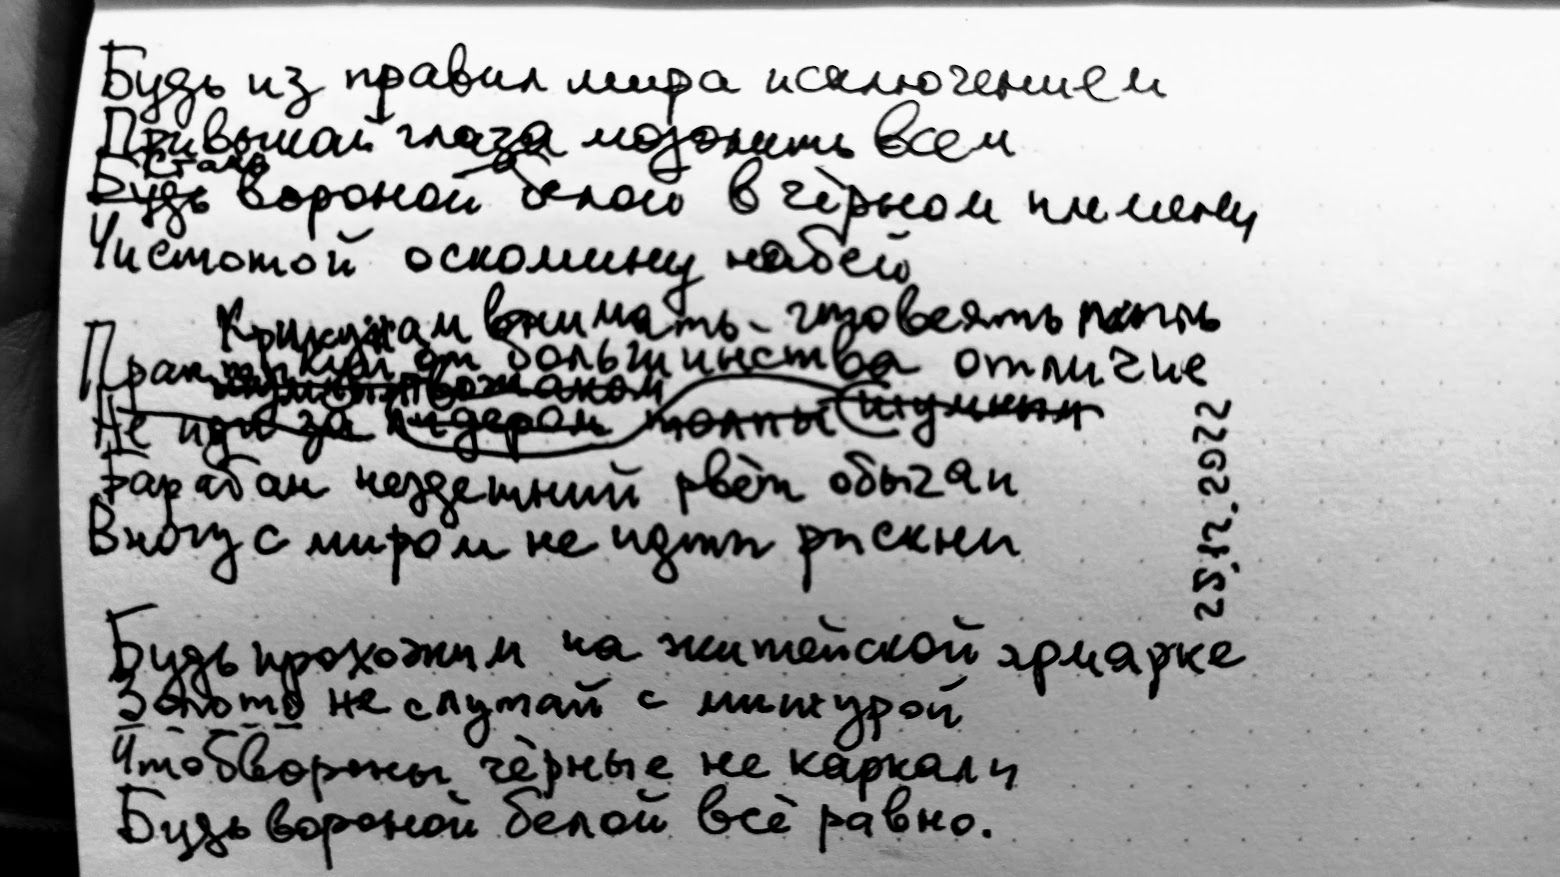 Будь из правил мира исключением
Привыкай глаза мозолить всем
Стань
Будь вороной белой в чёрном племени
Чистотой оскомину набей
внимать
Практикуй от большинства отличие
вожаком
Не иди за лидером толпы шумным
Барабан нездешний рвёт обычаи
В ногу с миром не идти рискни
22.12.2022
Будь прохожим на житейской ярмарке
Золото не спутай с мишурой
Чтоб вороны чёрные не каркали
Будь вороной белой всё равно.